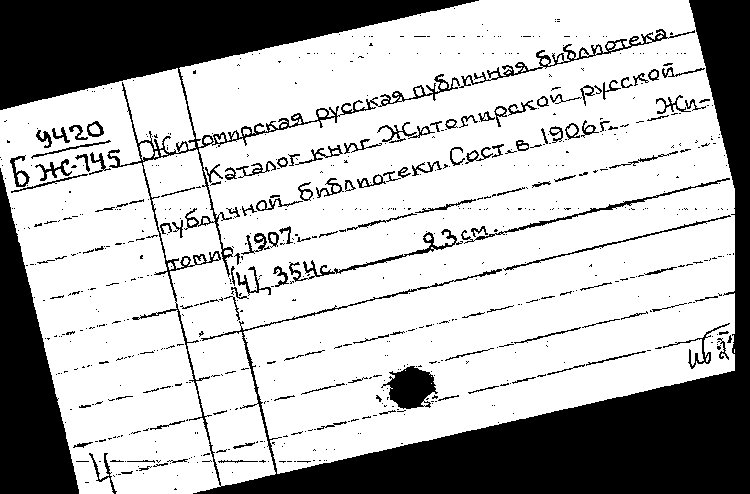 Б 9420
Ж-745
Житомирская русская публичная библиотека.
Каталог книг Житомирской русской
публичной библиотеки. Сост. в 1906 г. Жи-
томир, 1907.
[4], 354 с. 23 см.